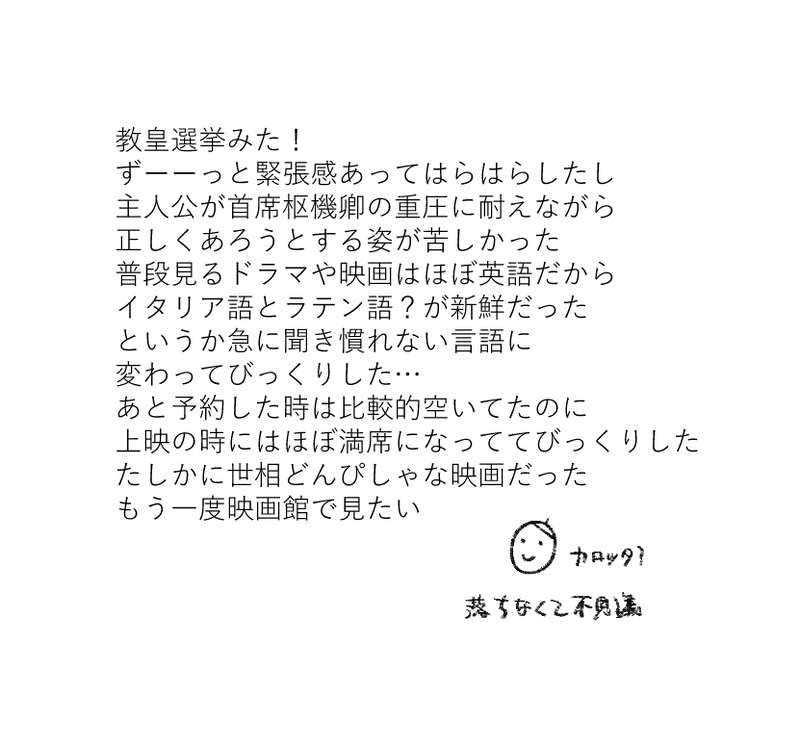 教皇選挙みた！
ずーーっと緊張感あってはらはらしたし
主人公が首席枢機卿の重圧に耐えながら
正しくあろうとする姿が苦しかった
普段見るドラマや映画はほぼ英語だから
イタリア語とラテン語？が新鮮だった
というか急に聞き慣れない言語に
変わってびっくりした…
あと予約した時は比較的空いてたのに
上映の時にはほぼ満席になっててびっくりした
たしかに世相どんぴしゃな映画だった
もう一度映画館で見たい
カロッタ？
落ちなくて不思議